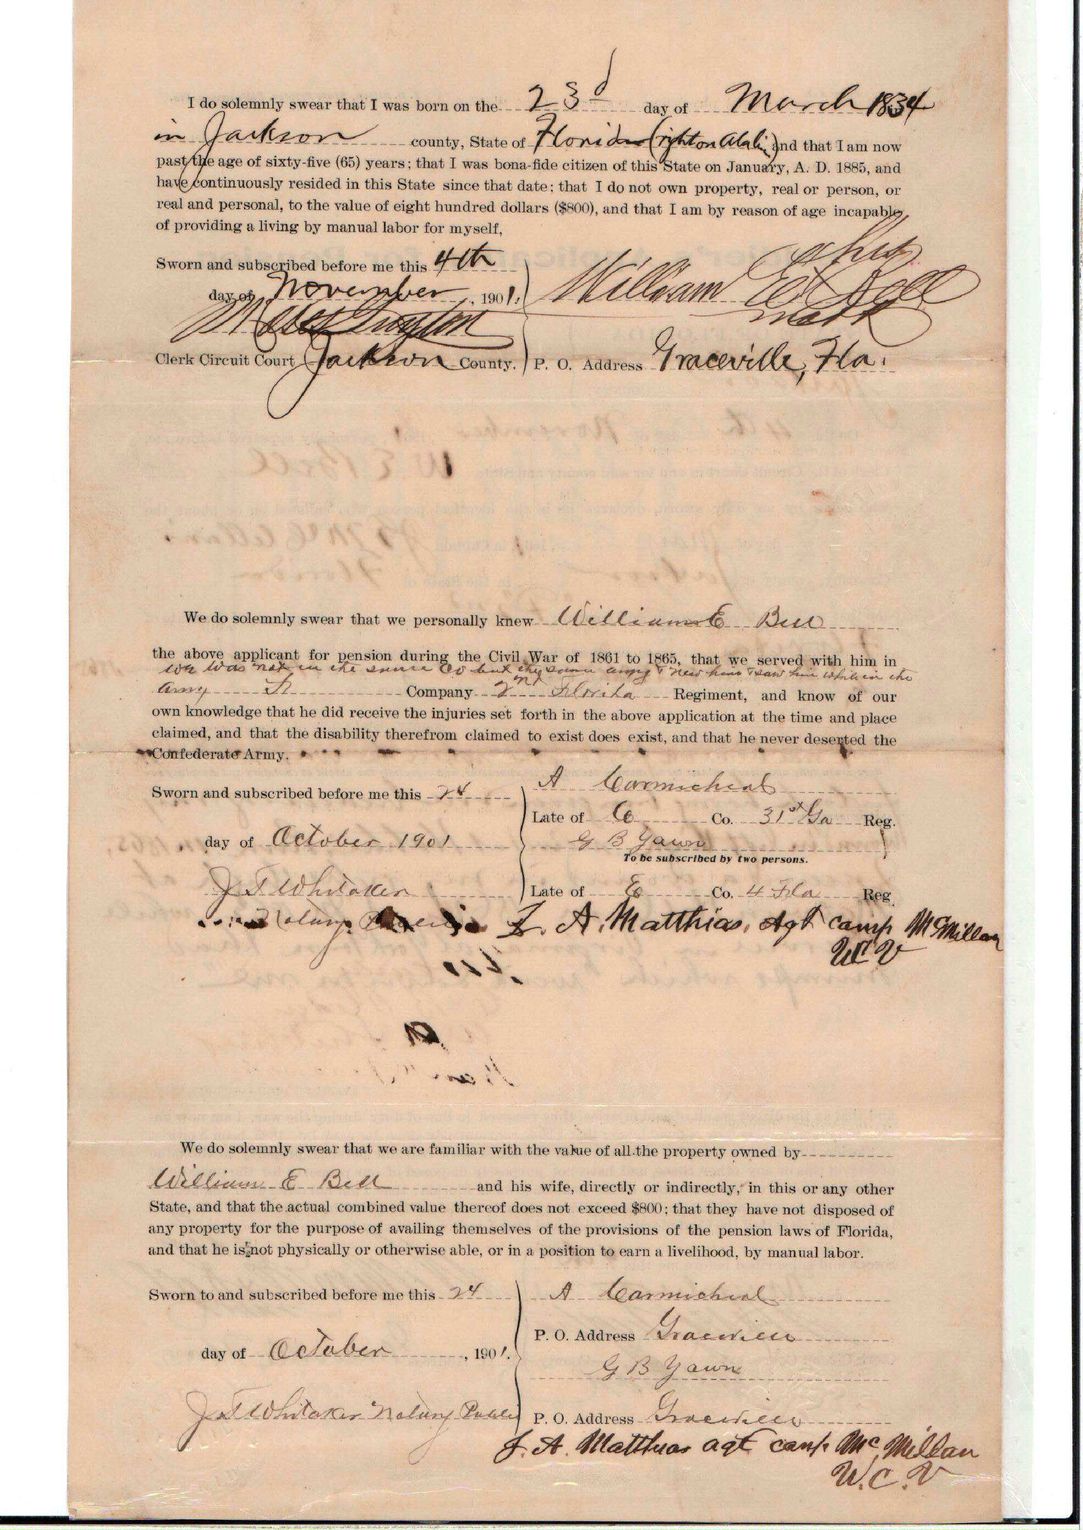 I do solemnly swear that I was born on the 23d day of March 1834
in Jackson county, State of Florida (right on Ala line) and that I am now
past the age of sixty-five (65) years; that I was bona-fide citizen of this State on January, A. D. 1885, and
have continuously resided in this State since that date; that I do not own property, real or person, or
real and personal, to the value of eight hundred dollars ($800), and that I am by reason of age incapable
of providing a living by manual labor for myself,
his
Sworn and subscribed before me this 4th
William E X Bell
day of November, 1901.
mark
Clerk Circuit Court Jackson County.
P. O. Address Graceville, Fla.
We do solemnly swear that we personally knew William E Bell
the above applicant for pension during the Civil War of 1861 to 1865, that we served with him in
we was not in the same Co but the same army & knew him & saw him while in the
army Company 2nd Florida Regiment, and know of our
own knowledge that he did receive the injuries set forth in the above application at the time and place
claimed, and that the disability therefrom claimed to exist does exist, and that he never deserted the
Confederate Army.
Sworn and subscribed before me this 24
A Carmicheal
Late of C Co. 31st Ga Reg.
day of October 1901
G B Yawn
To be subscribed by two persons.
J T Whitaker
Late of E Co. 4 Fla Reg
Notary Public
J. A. Matthias, Agt camp McMillan
U.C.V
We do solemnly swear that we are familiar with the value of all the property owned by
William E Bell and his wife, directly or indirectly, in this or any other
State, and that the actual combined value thereof does not exceed $800; that they have not disposed of
any property for the purpose of availing themselves of the provisions of the pension laws of Florida,
and that he is not physically or otherwise able, or in a position to earn a livelihood, by manual labor.
Sworn to and subscribed before me this 24
A Carmicheal
P. O. Address Graceville
day of October, 1901.
G B Yawn
J T Whitaker Notary Public
P. O. Address Graceville
J. A. Matthias agt camp McMillan
U.C.V